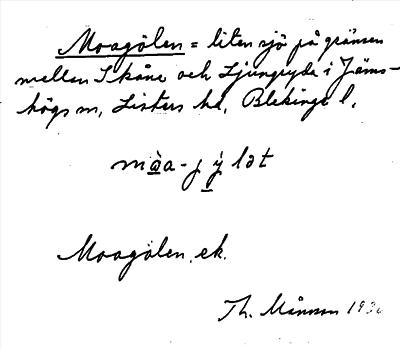 Moagölen = liten sjö på gränsen
mellan Skåne och Ljungryda i Jäms-
högs sn, Listers hd, Blekinge l.
màa-jỳlət
Moagölen, ek.
Th. Månsson 1930